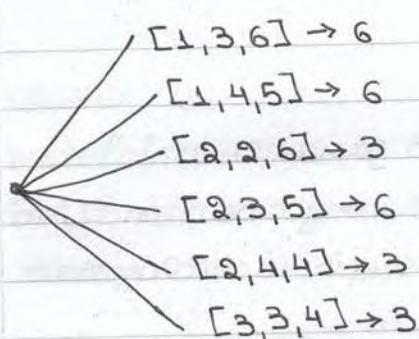 [1,3,6] → 6
[1,4,5] → 6
[2,2,6] → 3
[2,3,5] → 6
[2,4,4] → 3
[3,3,4] → 3